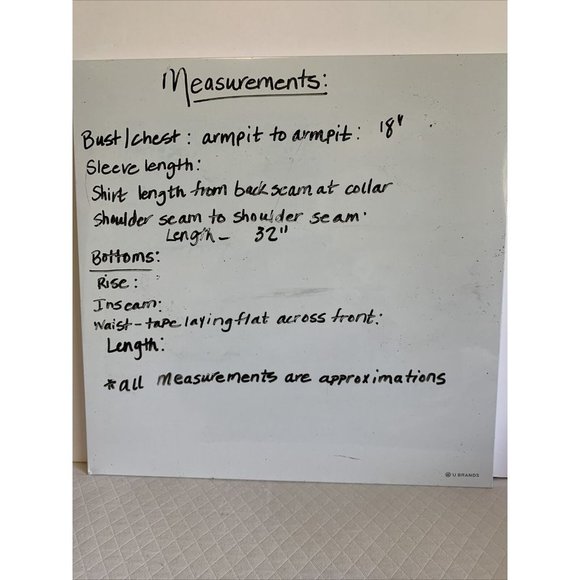 Measurements:
Bust/chest: armpit to armpit: 18"
Sleeve length:
Shirt length from back seam at collar
Shoulder seam to shoulder seam.
Length- 32"
Bottoms:
Rise:
Inseam:
Waist-tape laying flat across front:
Length:
*all measurements are approximations
U BRANDS